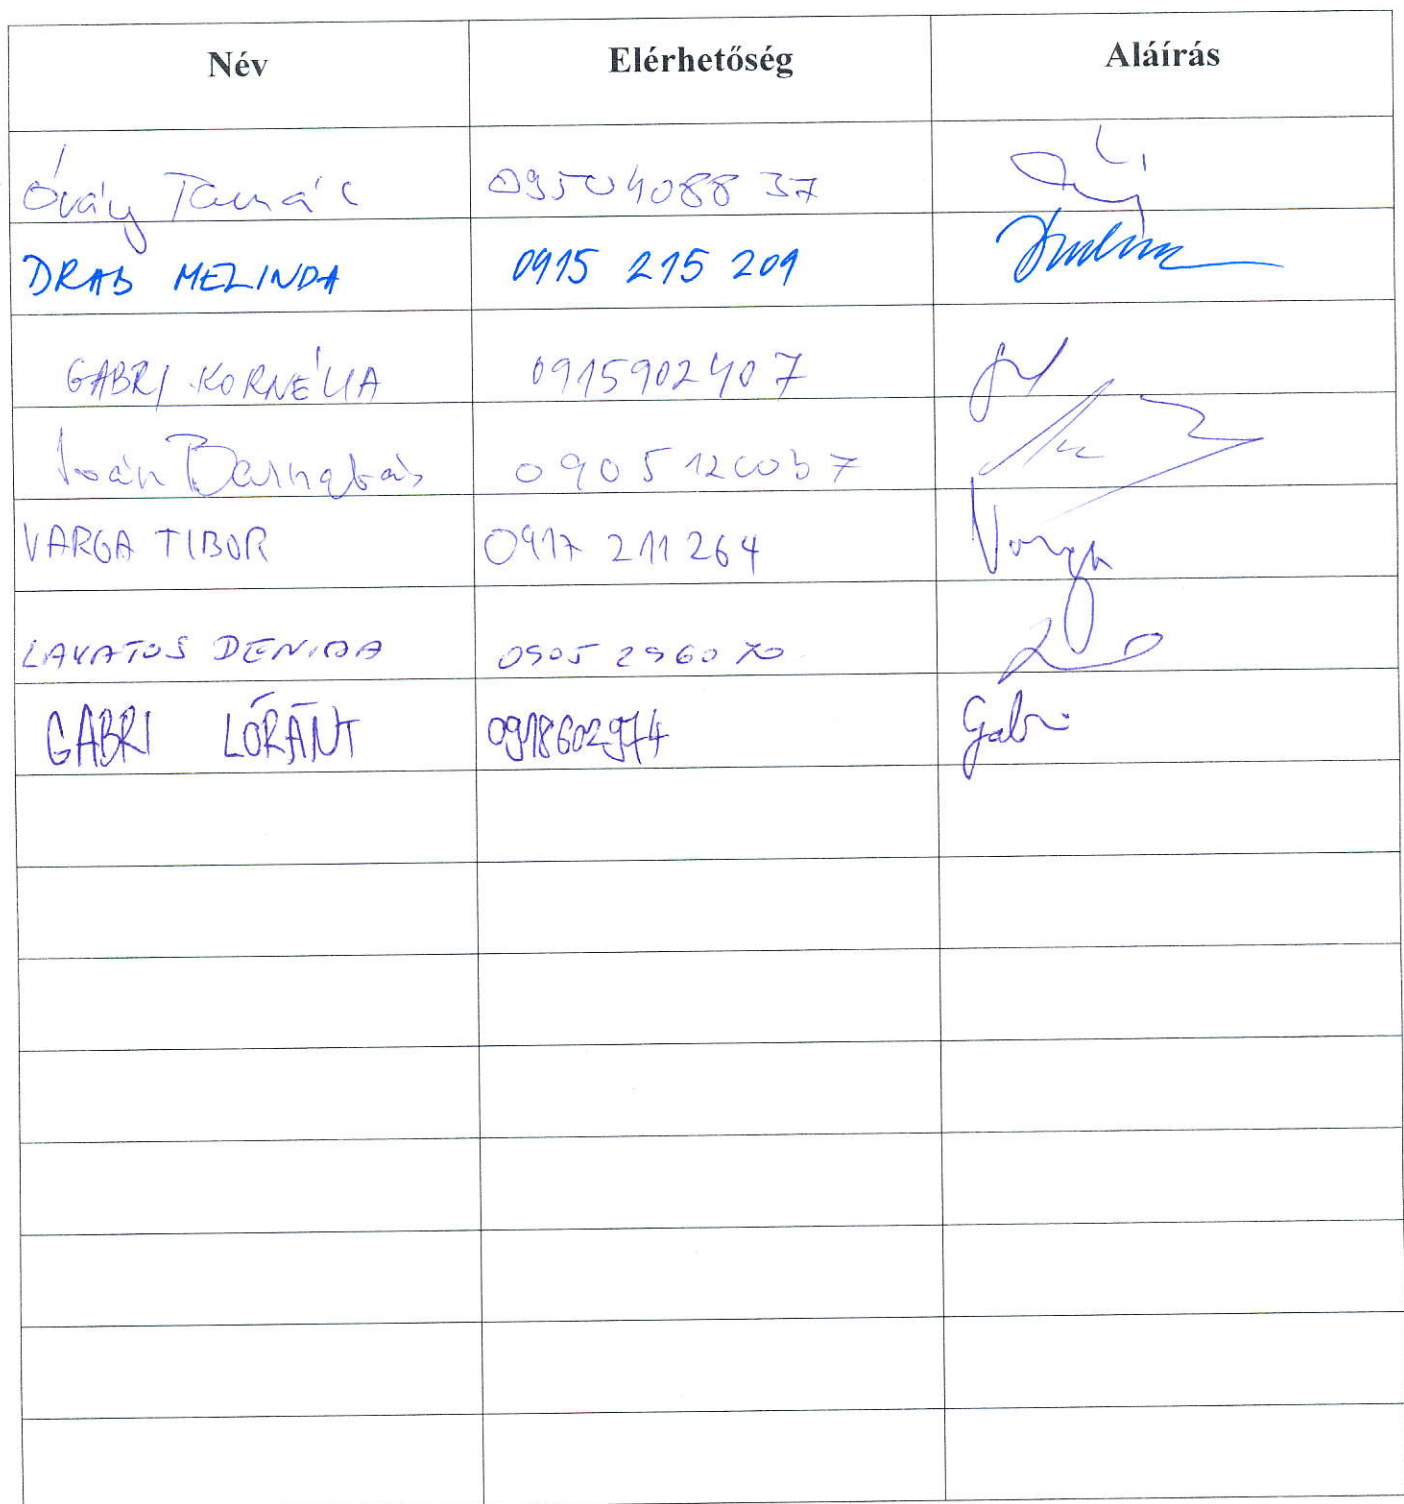 Név Elérhetőség Aláírás
Óváry Tamás 0950408837
DRAB MELINDA 0915 215 209
GABRI KORNÉLIA 0915902407
Iván Barnabás 0905120037
VARGA TIBOR 0917 211 264 Varga
LAKATOS DENISA 0905 296070
GABRI LÓRÁNT 0918602974 Gabri